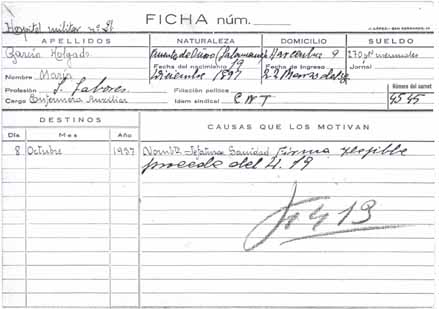 Hospital militar nº 21
FICHA núm.
J. LÓPEZ.-SAN BERNARDO, 19
APELLIDOS NATURALEZA DOMICILIO SUELDO
García Holgado Fuentes de Oñoro (Salamanca) 9 270 mensuales
Fecha del nacimiento 19 Fecha de Ingreso Jornal
Nombre María Diciembre 1897 22 Marzo
Profesión S. Labores Filiación política Número del carnet
Cargo Enfermera Auxiliar Idem sindical C N T 4545
DESTINOS CAUSAS QUE LOS MOTIVAN
Día Mes Año
8 Octubre 1937 Nombtº Jefatura Sanidad
procede del H. 19